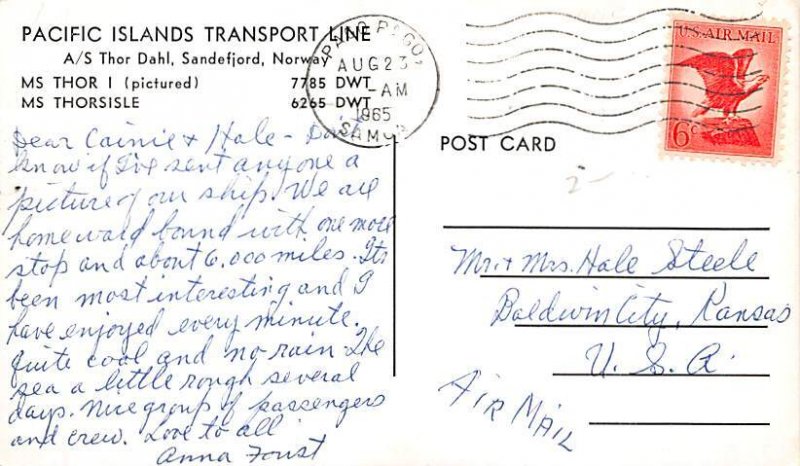 PACIFIC ISLANDS TRANSPORT LINE
A/S Thor Dahl, Sandefjord, Norway
MS THOR I (pictured) 7785 DWT
MS THORSISLE 6265 DWT
Dear Cainie & Hale - Don't
know if I've sent anyone a
picture of our ship. We are
homeward bound with one more
stop and about 6,000 miles. Its
been most interesting and I
have enjoyed every minute.
Quite cool and no rain. The
sea a little rough several
days. Nice group of passengers
and crew. Love to all
Anna Foust
PAGO PAGO,
AUG 23
-AM
1965
SAMOA
U.S. AIR MAIL
6c
POST CARD
2-
Mr. & Mrs. Hale Steele
Baldwin City, Kansas
U.S.A.
AIR MAIL